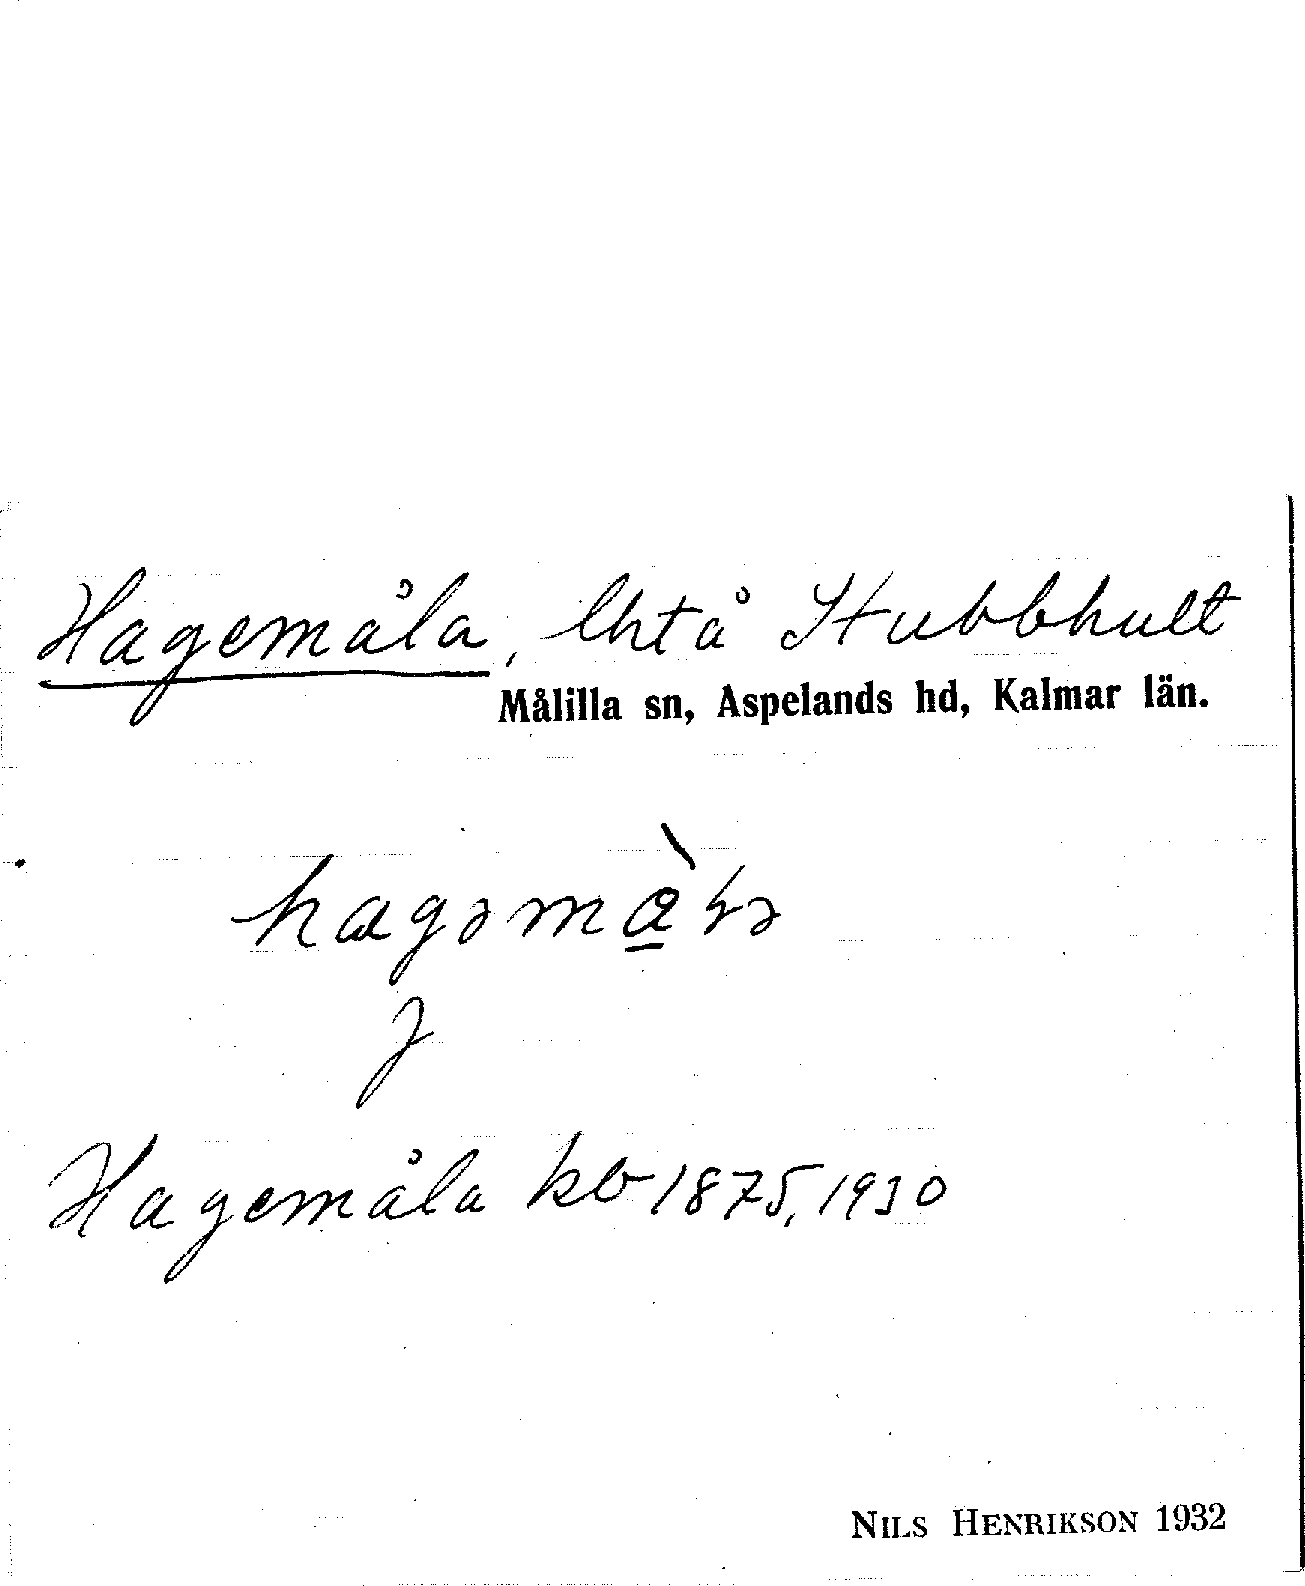 Hagemåla, lht å Stubbhult
Målilla sn, Aspelands hd, Kalmar län.
Hagemåla kb 1875, 1930
NILS HENRIKSON 1932